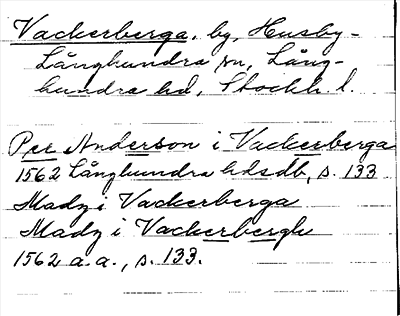 Vackerberga, by, Husby-
Långhundra sn, Lång-
hundra hd, Stockh. l.
Per Anderson i Vackerberga
1562 Långhundra hdsdb, s. 133
Madz i Vackerberga
Madz i Vackerbergh
1562 a.a., s. 133.